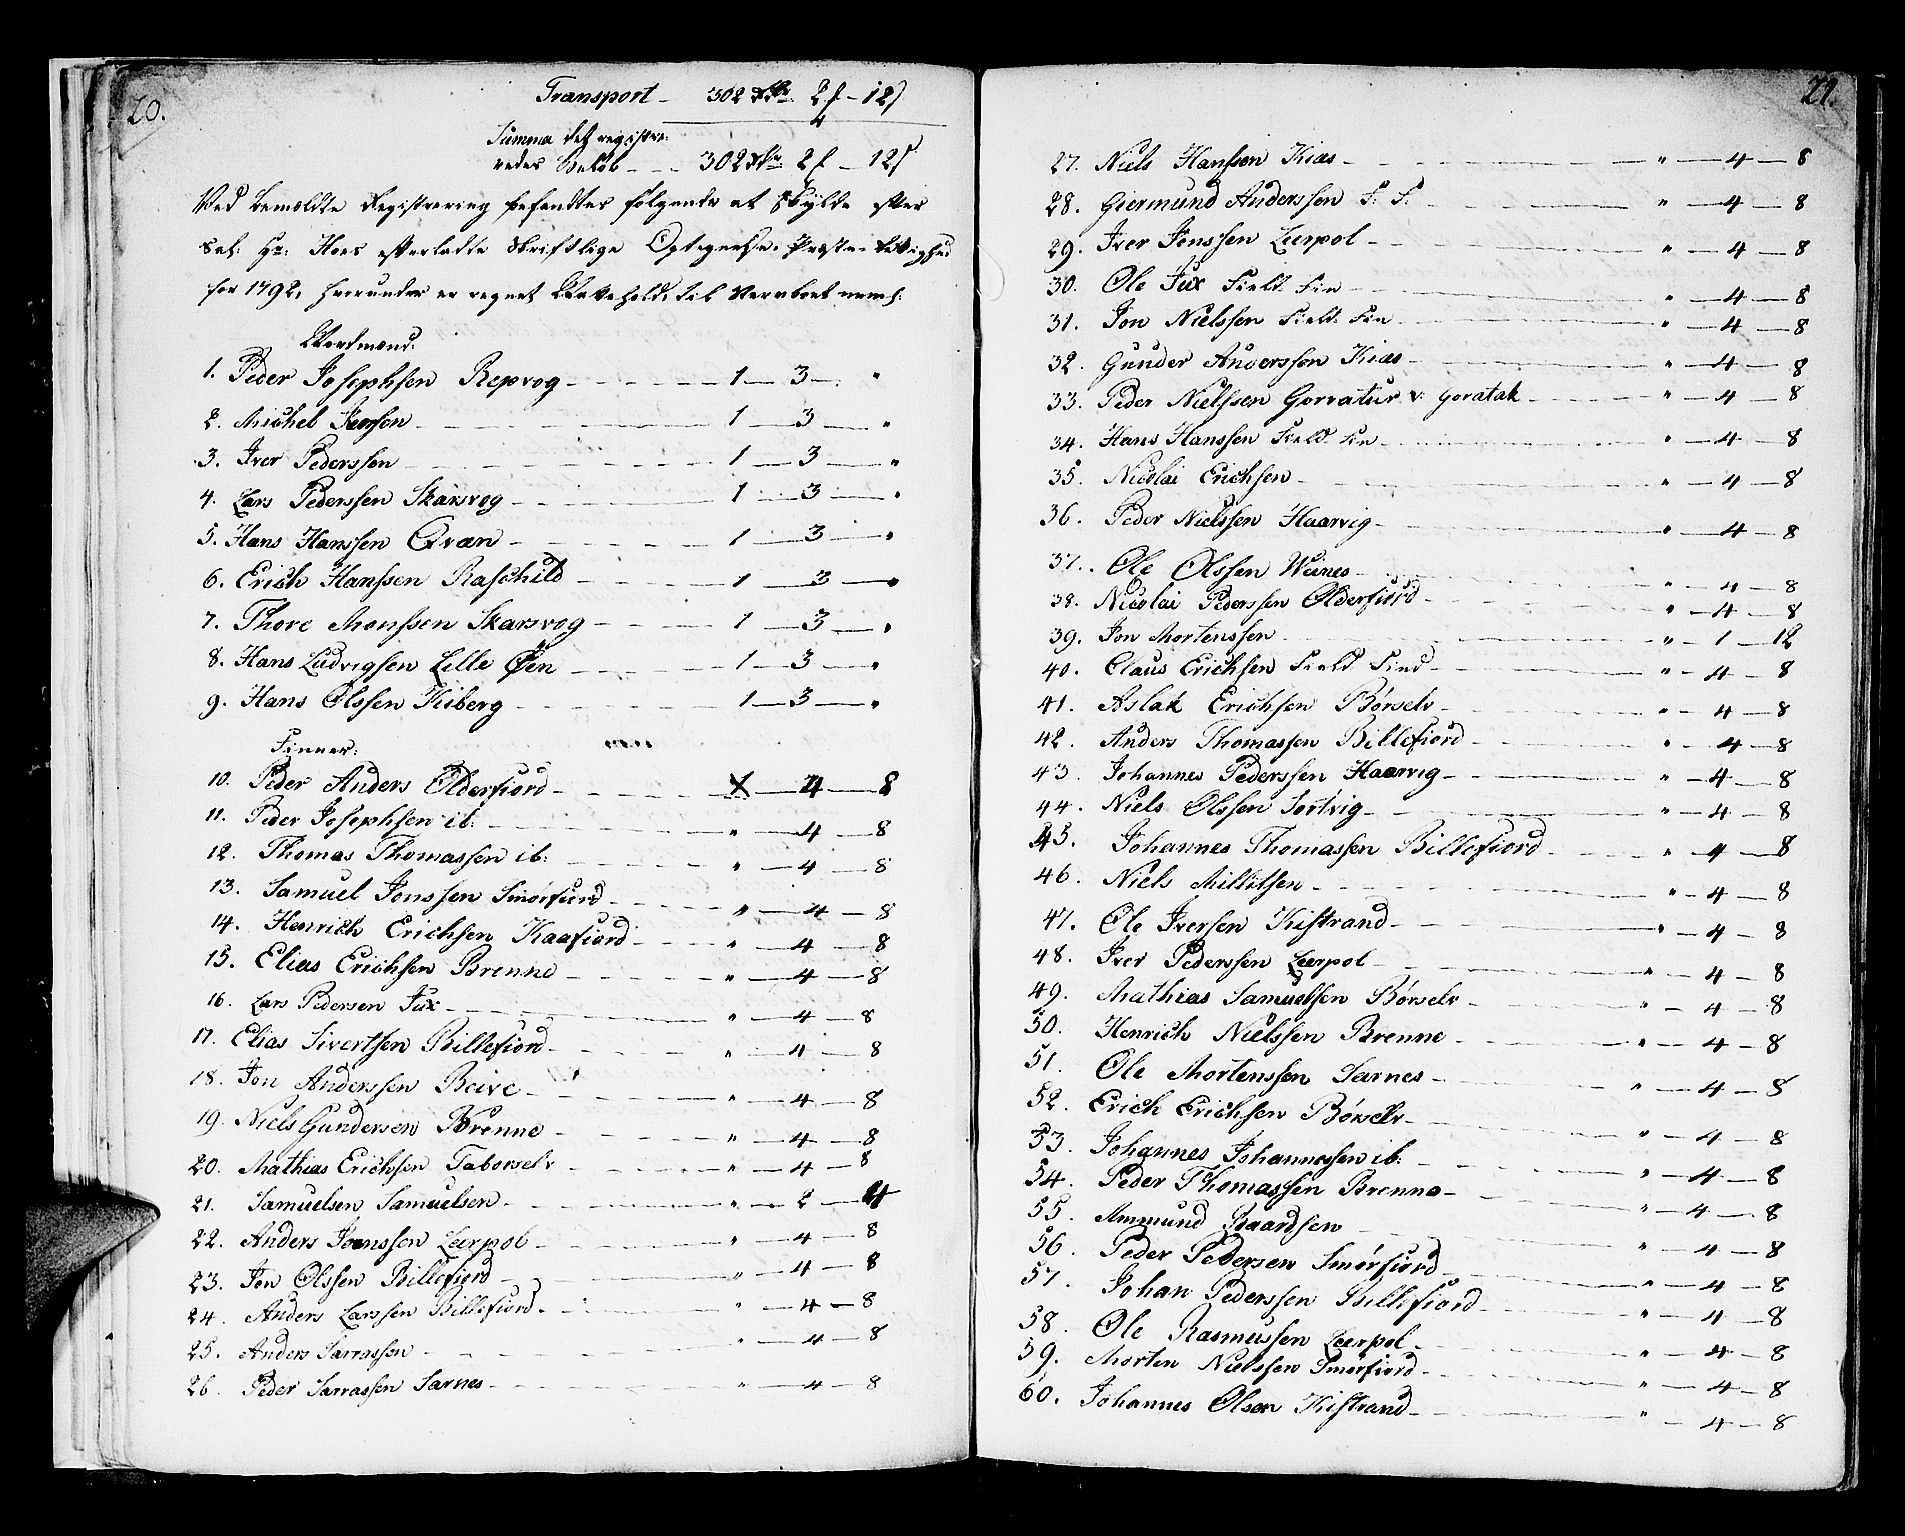 20.
Transport - 302 Rdr 2 f - 12 s
Summa det registre-
redes Beløb - - - 302 Rdr 2 f - 12 s
Ved bemeldte Registrering befandtes følgende at skylde efter
Sal: Hr: Hoes efterladte skriftlige Optegnelse. Præste-Rettighed
for 1792, hvorunder er regnet til nemL:
Nordmænd.
1. Peder Josephsen Repvog - 1 - 3 - "
2. Michel Iversen - 1 - 3 - "
3. Iver Pederssen - 1 - 3 - "
4. Lars Pederssen Skarsvog - 1 - 3 - "
5. Hans Hanssen Qvæn - 1 - 3 - "
6. Erich Hanssen Raschild - 1 - 3 - "
7. Thore Monssen Skarsvog - 1 - 3 - "
8. Hans Ludvigsen Lille Øen - 1 - 3 - "
9. Hans Olssen Kiberg - 1 - 3 - "
Finner:
10. Peder Anders Olderfiord - 4 - 8
11. Peder Josephsen ib: - " - 4 - 8
12. Thomas Thomassen ib: - " - 4 - 8
13. Samuel Jonssen Smørfiord - " - 4 - 8
14. Henrich Erichsen Kaafiord - " - 4 - 8
15. Elias Erichsen Brenne - " - 4 - 8
16. Lars Pedersen Jux - " - 4 - 8
17. Elias Sivertsen Billefiord - " - 4 - 8
18. Jon Anderssen Beive - " - 4 - 8
19. Niels Gundersen Brenne - " - 4 - 8
20. Mathias Erichsen Taborselv - " - 4 - 8
21. Samuelsen Samuelsen - " - 2 - 4
22. Anders Joenssen Leerpol - " - 4 - 8
23. Jon Olssen Billefiord - " - 4 - 8
24. Anders Larssen Billefiord - " - 4 - 8
25. Anders Sarrassen - " - 4 - 8
26. Peder Sarrassen Sarnes - " - 4 - 8
21.
27. Niels Hanssen Kias - " - 4 - 8
28. Giermund Anderssen F: F: - " - 4 - 8
29. Iver Jenssen Leerpol - " - 4 - 8
30. Ole Jux Field Fin - " - 4 - 8
31. Jon Nielssen Field. Fin - " - 4 - 8
32. Gunder Anderssen Kias - " - 4 - 8
33. Peder Nielssen Gorratur v: Goratak - " - 4 - 8
34. Hans Hanssen Field. Fin - " - 4 - 8
35. Nicolai Erichsen - " - 4 - 8
36. Peder Nielssen Haarvig - " - 4 - 8
37. Ole Olssen Weines - " - 4 - 8
38. Nicolai Pederssen Olderfiord - " - 4 - 8
39. Jon Mortenssen - " - 1 - 12
40. Claus Erichsen Field Find - " - 4 - 8
41. Aslak Erichsen Børselv - " - 4 - 8
42. Anders Thomassen Billefiord - " - 4 - 8
43. Johannes Pederssen Haarvig - " - 4 - 8
44. Niels Olssen Sortvig - " - 4 - 8
45. Johannes Thomassen Billefiord - " - 4 - 8
46. Niels Millitsen - " - 4 - 8
47. Ole Iversen Kistrand - " - 4 - 8
48. Iver Pederssen Leerpol - " - 4 - 8
49. Mathias Samuelsen Børselv - " - 4 - 8
50. Henrich Nielssen Brenne - " - 4 - 8
51. Ole Mortenssen Sarnes - " - 4 - 8
52. Erich Erichsen Børselv - " - 4 - 8
53. Johannes Johannessen ib: - " - 4 - 8
54. Peder Thomassen Brenne - " - 4 - 8
55. Ammund Baardsen - " - 4 - 8
56. Peder Pedersen Smørfiord - " - 4 - 8
57. Johan Pederssen Billefiord - " - 4 - 8
58. Ole Rasmussen Leerpol - " - 4 - 8
59. Morten Nielssen Smørfiord - " - 4 - 8
60. Johannes Olsen Kistrand - " - 4 - 8